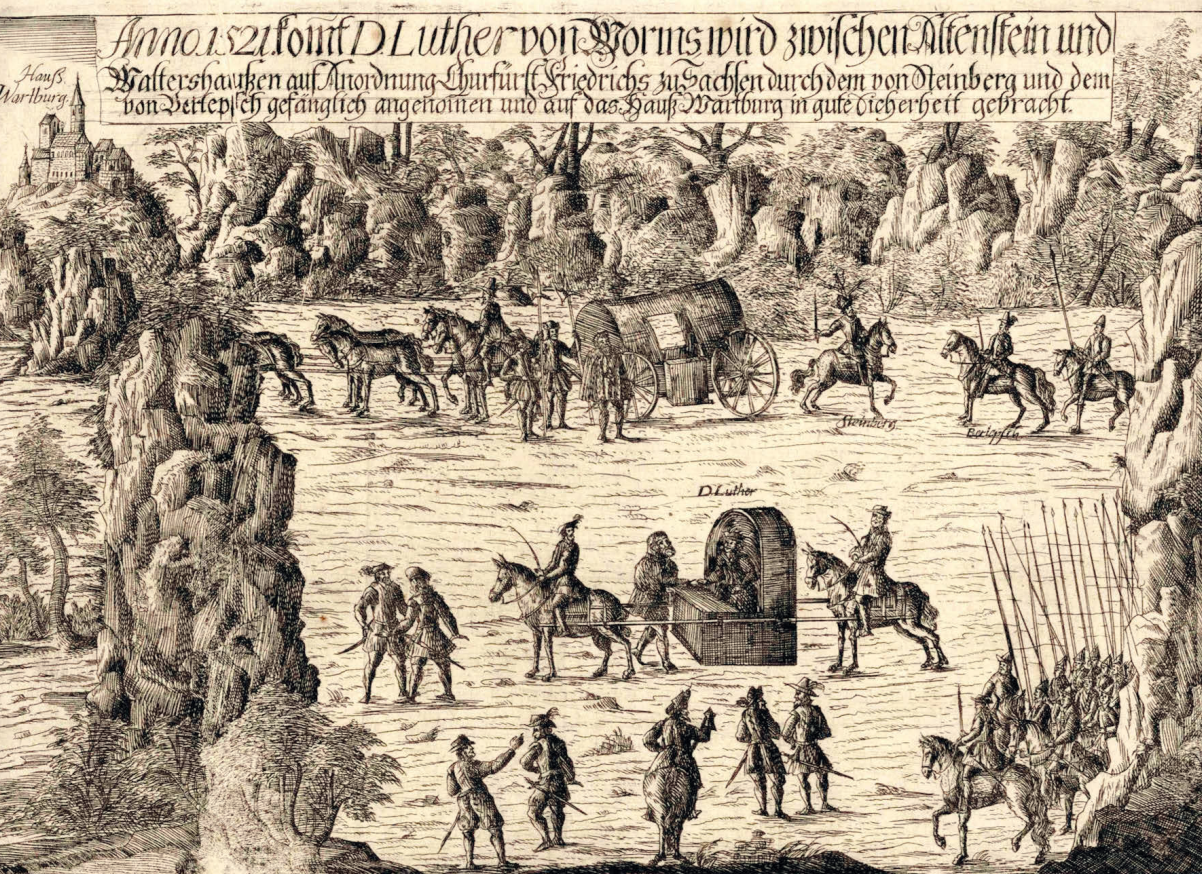 Anno.1521.kom̅t D.Luther von Worms wird zwischen Altenstein und
Waltershaußen auf Anordnung Churfürst Friedrichs zu Sachsen durch dem von Steinberg und dem
von Berlepsch gefänglich angenom̅en und auf das Hauß Wartburg in gute Sicherheit gebracht.
Hauß
Wartburg.
Steinberg
Berlepsch
D Luther